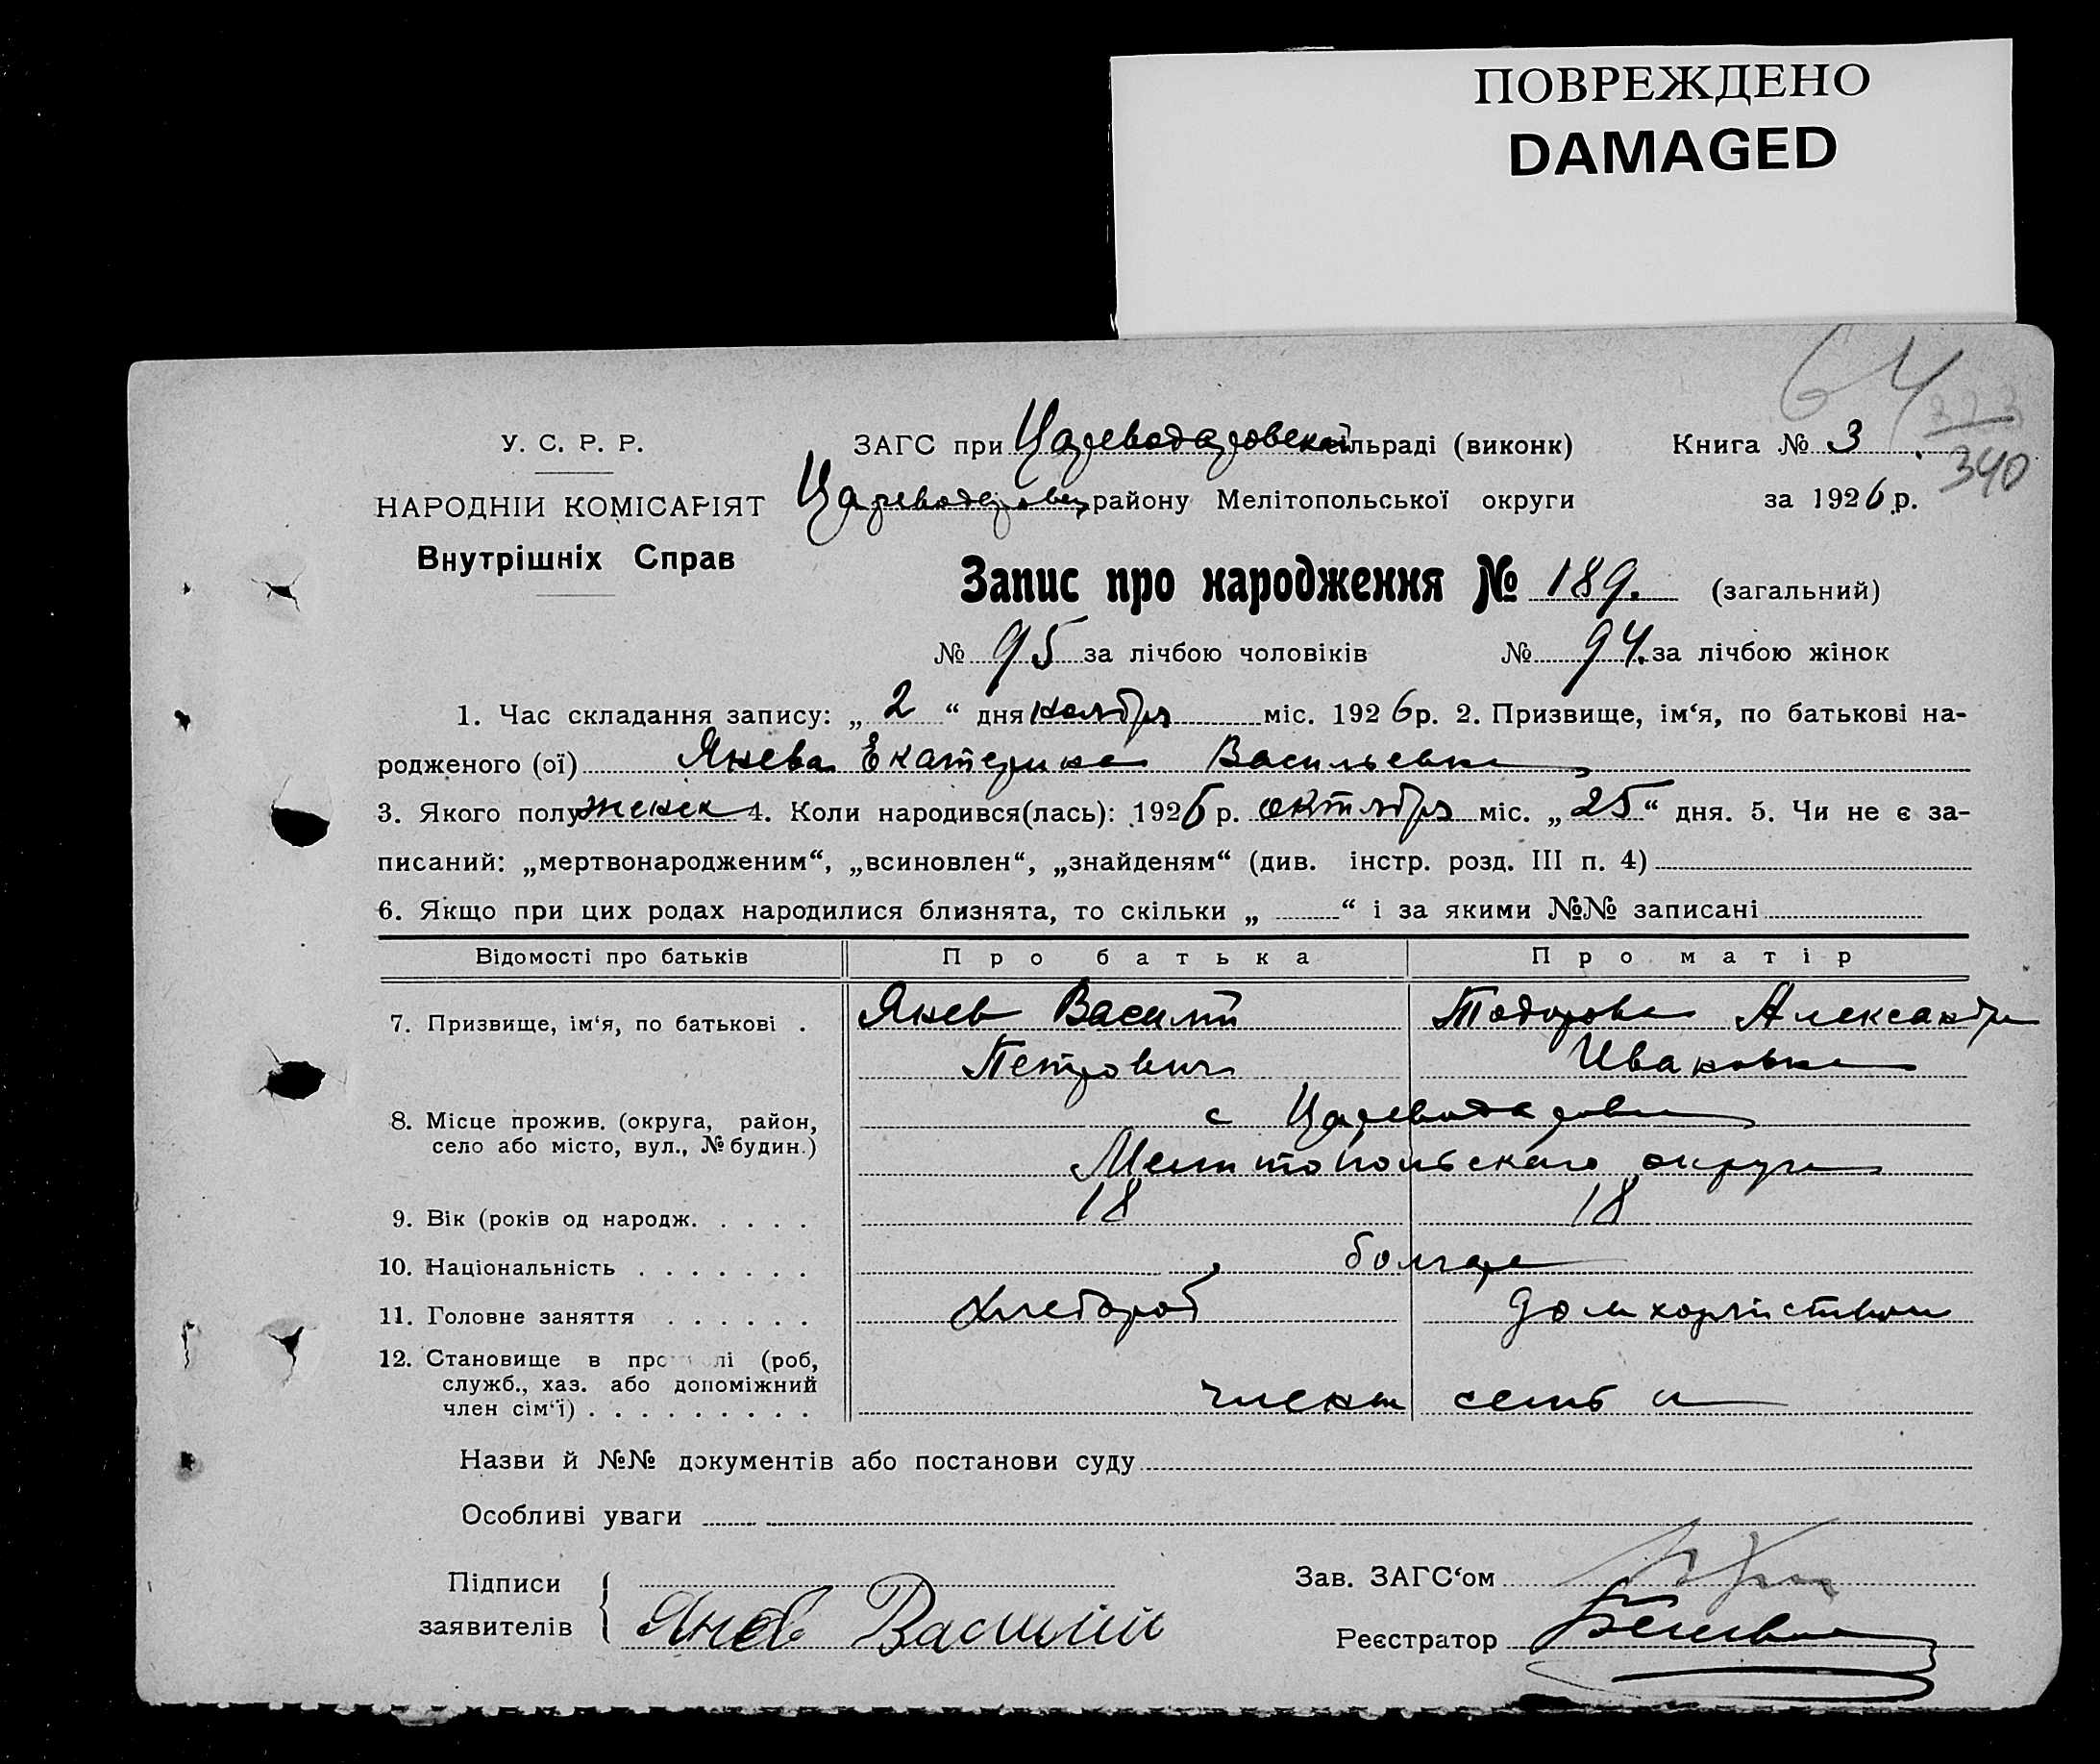 ПОВРЕЖДЕНО
DAMAGED
64
340
У. С. Р. Р.
ЗАГС при Цареводаровской сільраді (виконк)
Книга № 3
НАРОДНІЙ КОМІСАРІЯТ
Цареводаровск району Мелітопольської округи
за 1926 р.
Внутрішніх Справ
Запис про народження № 189. (загальний)
№ 95 за лічбою чоловіків № 94. за лічбою жінок
1. Час складання запису: „ 2 “ дня ноября міс. 1926 р. 2. Призвище, ім‘я, по батькові на-
родженого (ої) Янева Екатерина Васильевна
3. Якого полу женск 4. Коли народився(лась): 1926 р. октября міс. „ 25 “ дня. 5. Чи не є за-
писаний: „мертвонародженим“, „всиновлен“, „знайденям“ (див. інстр. розд. III п. 4)
6. Якщо при цих родах народилися близнята, то скільки „ “ і за якими №№ записані
Відомості про батьків Про батька Про матір
7. Призвище, ім‘я, по батькові . Янев Василий Тодорова Александра
Петрович Ивановна
8. Місце прожив. (округа, район, с Цареводаровка
село або місто, вул., № будин.) Мелитопольскаго округа
9. Вік (років од народж. . . . . 18 18
10. Національність . . . . . . . болгаре
11. Головне заняття . . . . . . Хлебороб домхозяйством
12. Становище в пром лі (роб,
служб., хаз. або допоміжний
член сім‘ї) . . . . . . . . . члены семьи
Назви й №№ документів або постанови суду
Особливі уваги
Підписи
Зав. ЗАГС‘ом
заявителів Янев Василий
Реєстратор